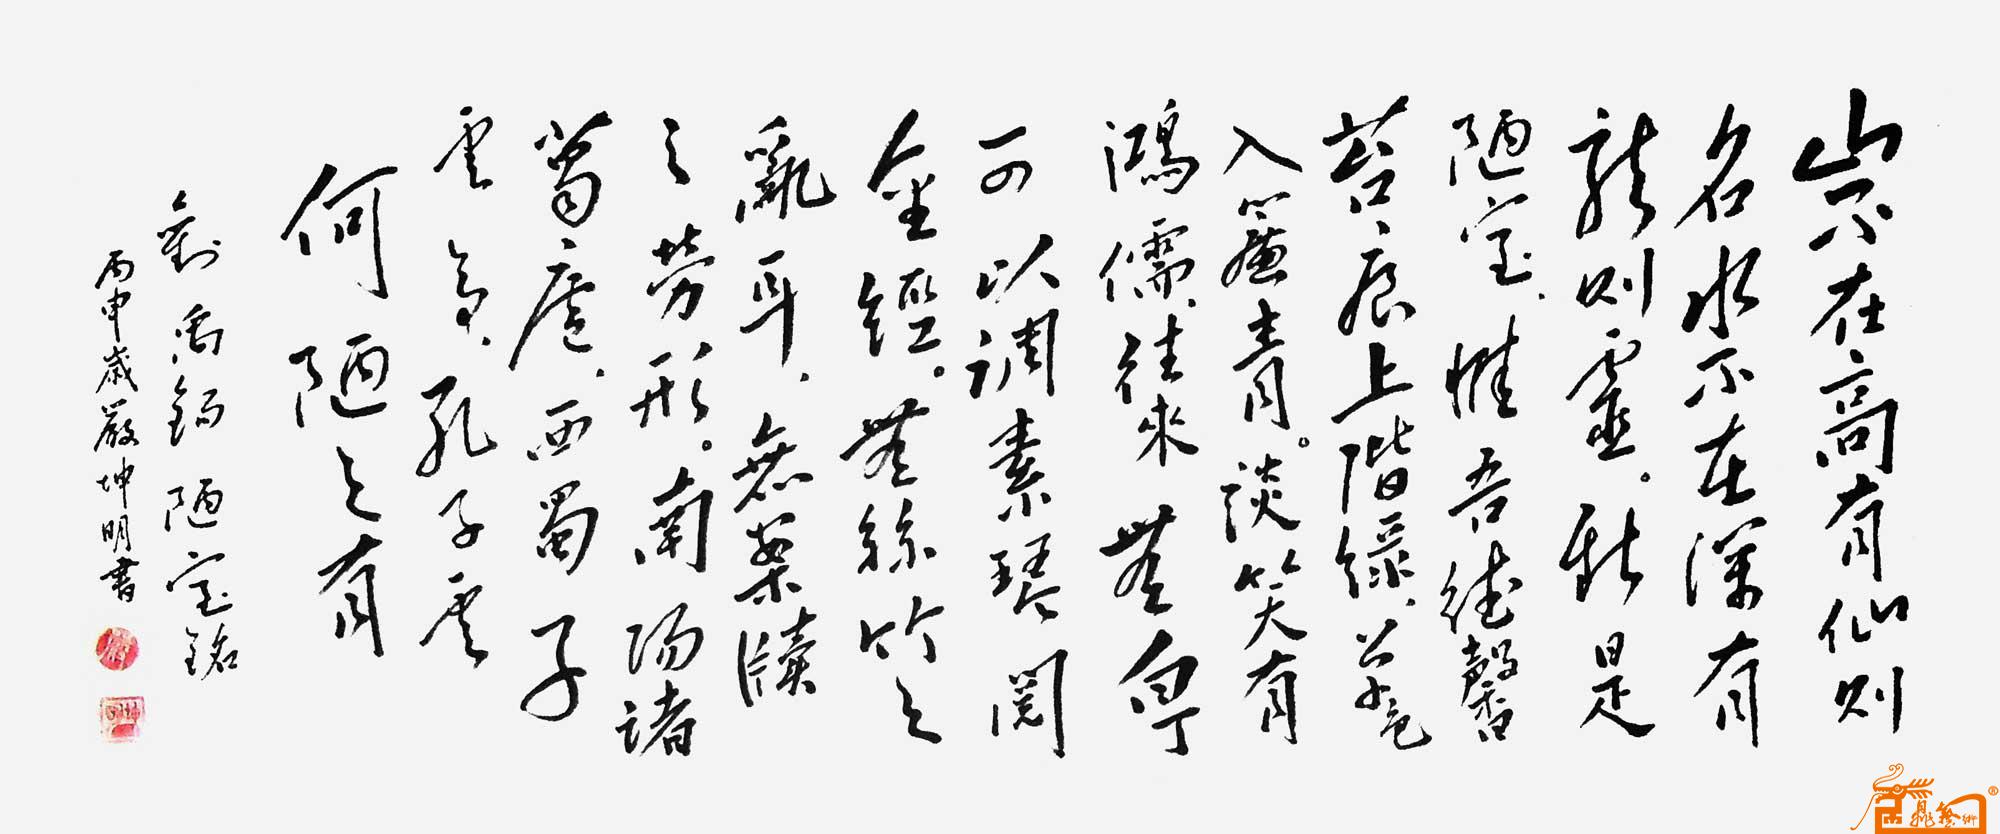 山不在高有仙则
名水不在深有
龍则靈。斯是
陋室、惟吾德馨
苔、痕上階綠、草色
入簾青。談笑有
鴻儒、往來無白丁
可以調素琴閱
金經。無絲竹之
亂耳、無案牘
之勞形。南陽諸
葛廬、西蜀子
雲亭、孔子云
何陋之有
劉禹錫陋室銘
丙申歲嚴坤明書